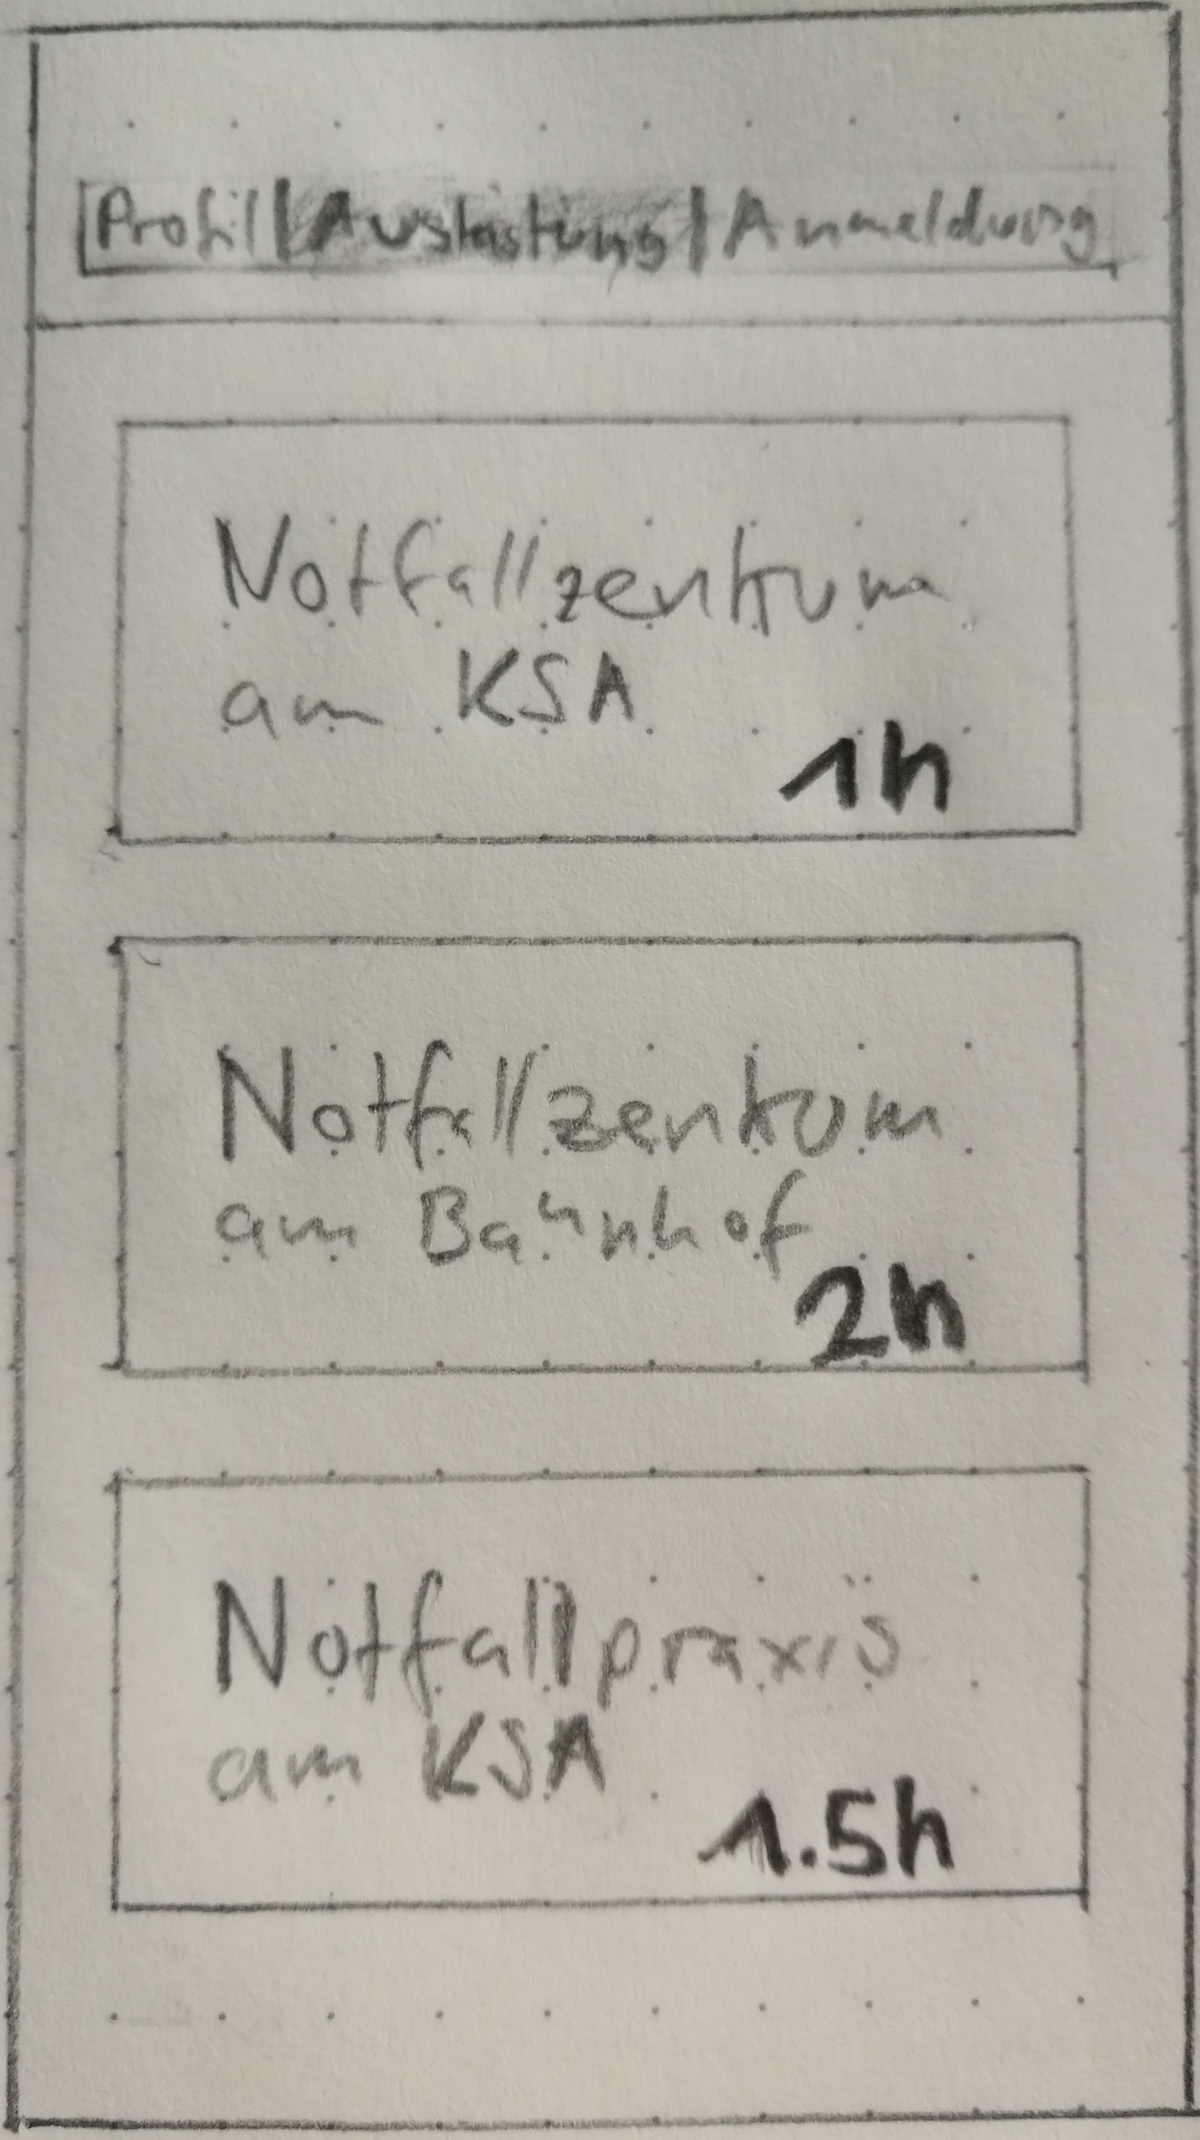 Profil | Auslastung | Anmeldung
Notfallzentrum
am KSA
1h
Notfallzentrum
am Bahnhof
2h
Notfallpraxis
am KSA
1.5h